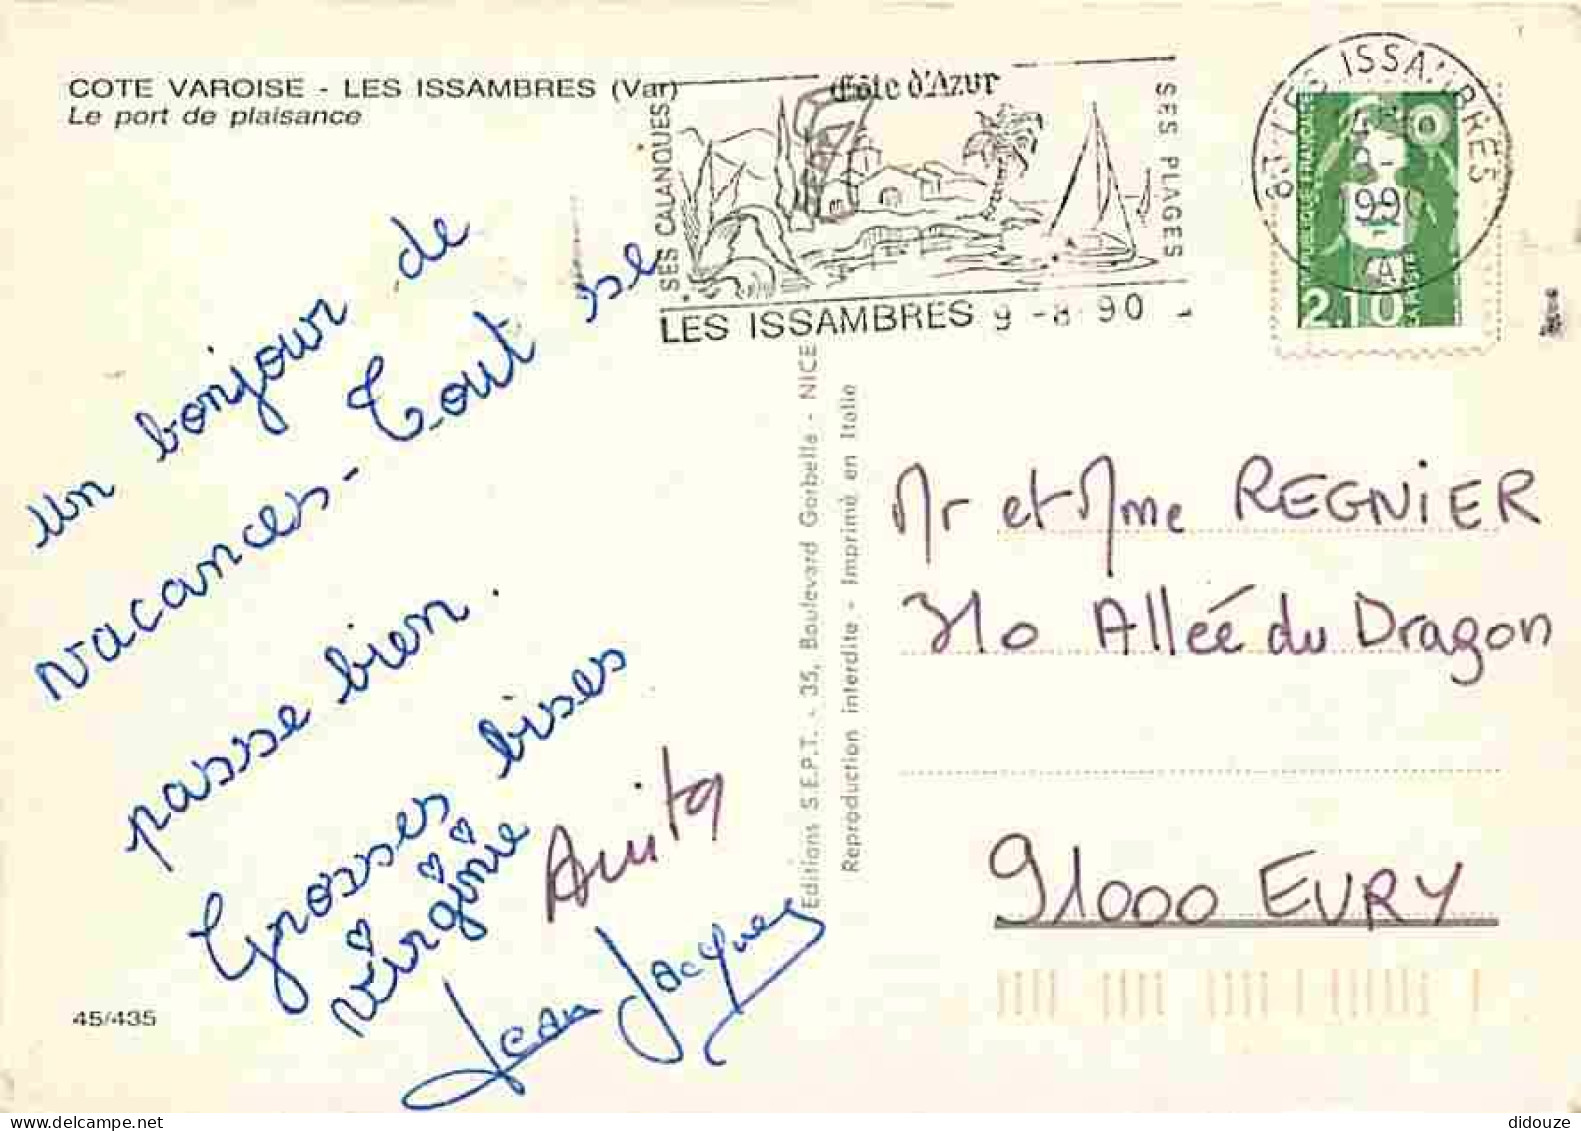 COTE VAROISE - LES ISSAMBRES (Var)
Le port de plaisance
Côte d'Azur
SES CALANQUES
SES PLAGES
LES ISSAMBRES 9 -8 90
83 LES ISSAMBRES
1990
REPUBLIQUE FRANÇAISE
2,10
un bonjour de
vacances - Tout se
passe bien.
Grosses bises
Virginie
Anita
Jean Jacques
45/435
Editions S.E.P.T. - 35, Boulevard Gorbella - NICE
Reproduction interdite - Imprimé en Italie
Mr et Mme REGNIER
310 Alleé du Dragon
91000 EVRY
didouze